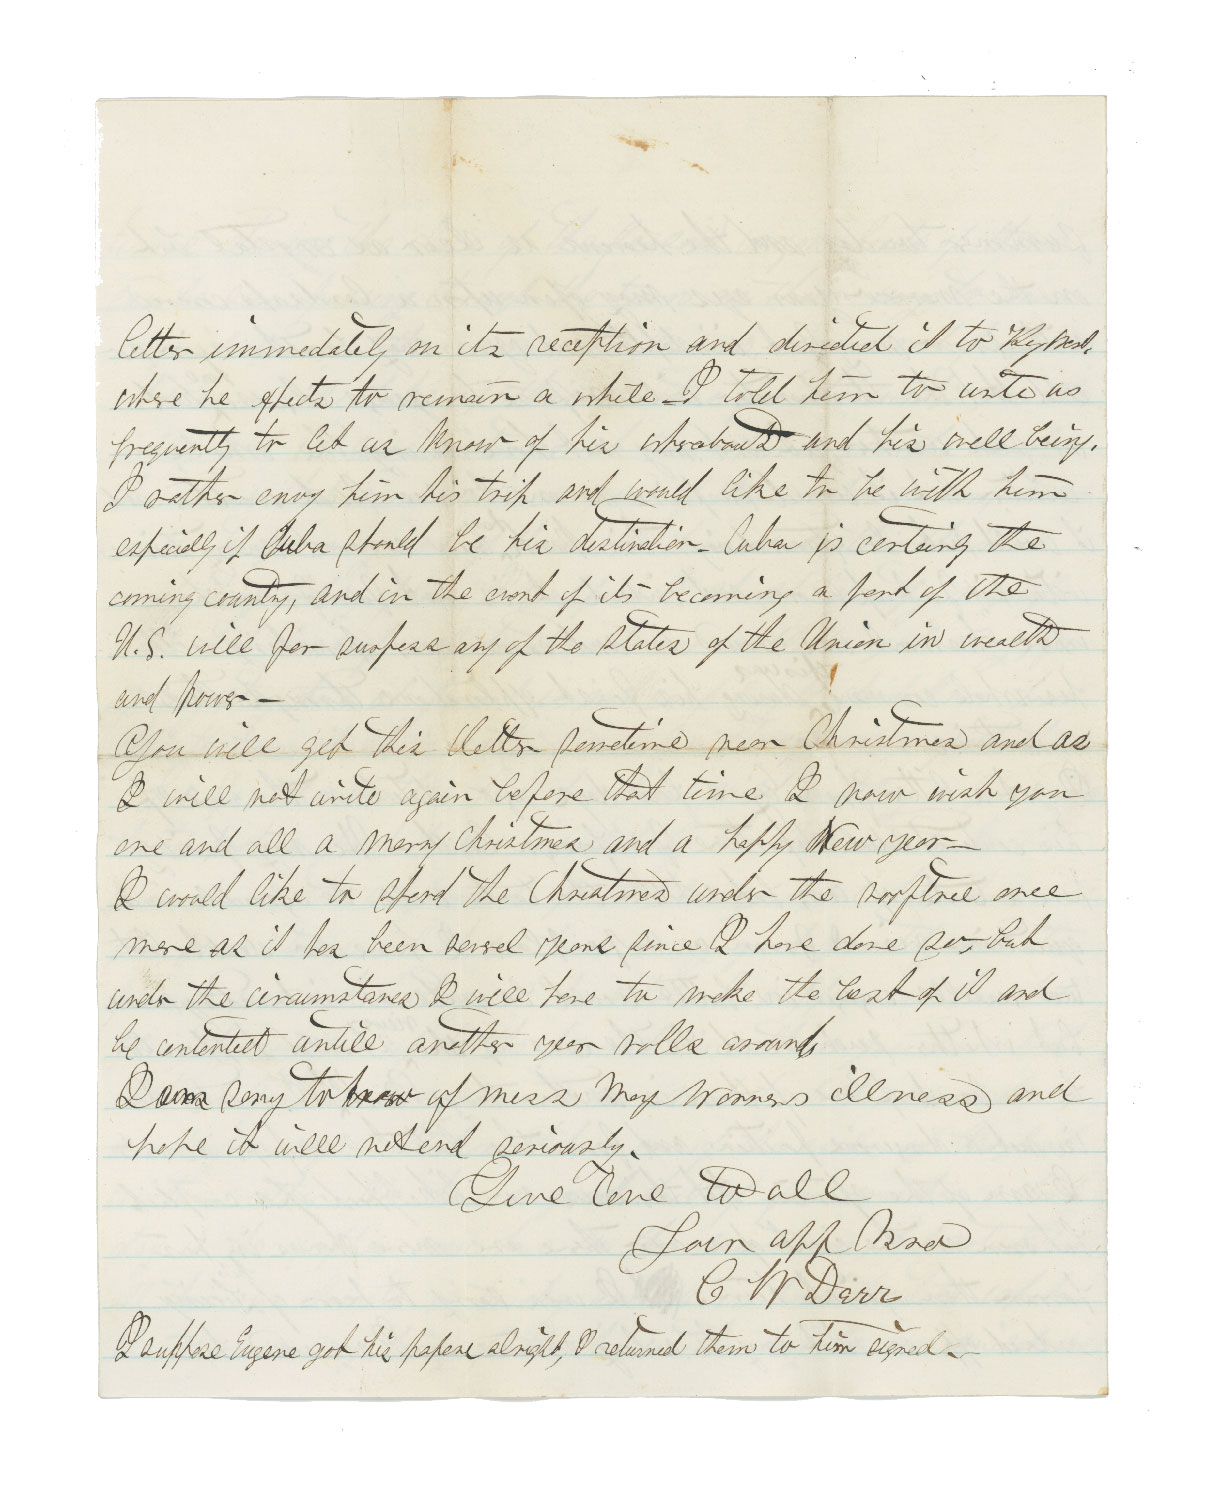 letter immediately on its reception and directed it to Key West.
where he expects to remain a while - I told him to write us
frequently to let us know of his whereabouts and his well being.
I rather envy him his trip and would like to be with him
especially if Cuba should be his destination - Cuba is certainly the
coming country, and in the event of its becoming a part of the
U.S. will far surpass any of the States of the Union in wealth
and power -
You will get this letter sometime near Christmas and as
I will not write again before that time I now wish you
one and all a merry Christmas and a happy New year -
I would like to spend the Christmas under the rooftree once
more as it has been several years since I have done so, but
under the circumstances I will have to make the best of it and
be contented untill another year rolls around
I am sorry to know of Miss May Warners illness and
hope it will not end seriously.
Give love to all
Your aff
C W Darr
I suppose Eugene got his papers alright, I returned them to him signed -